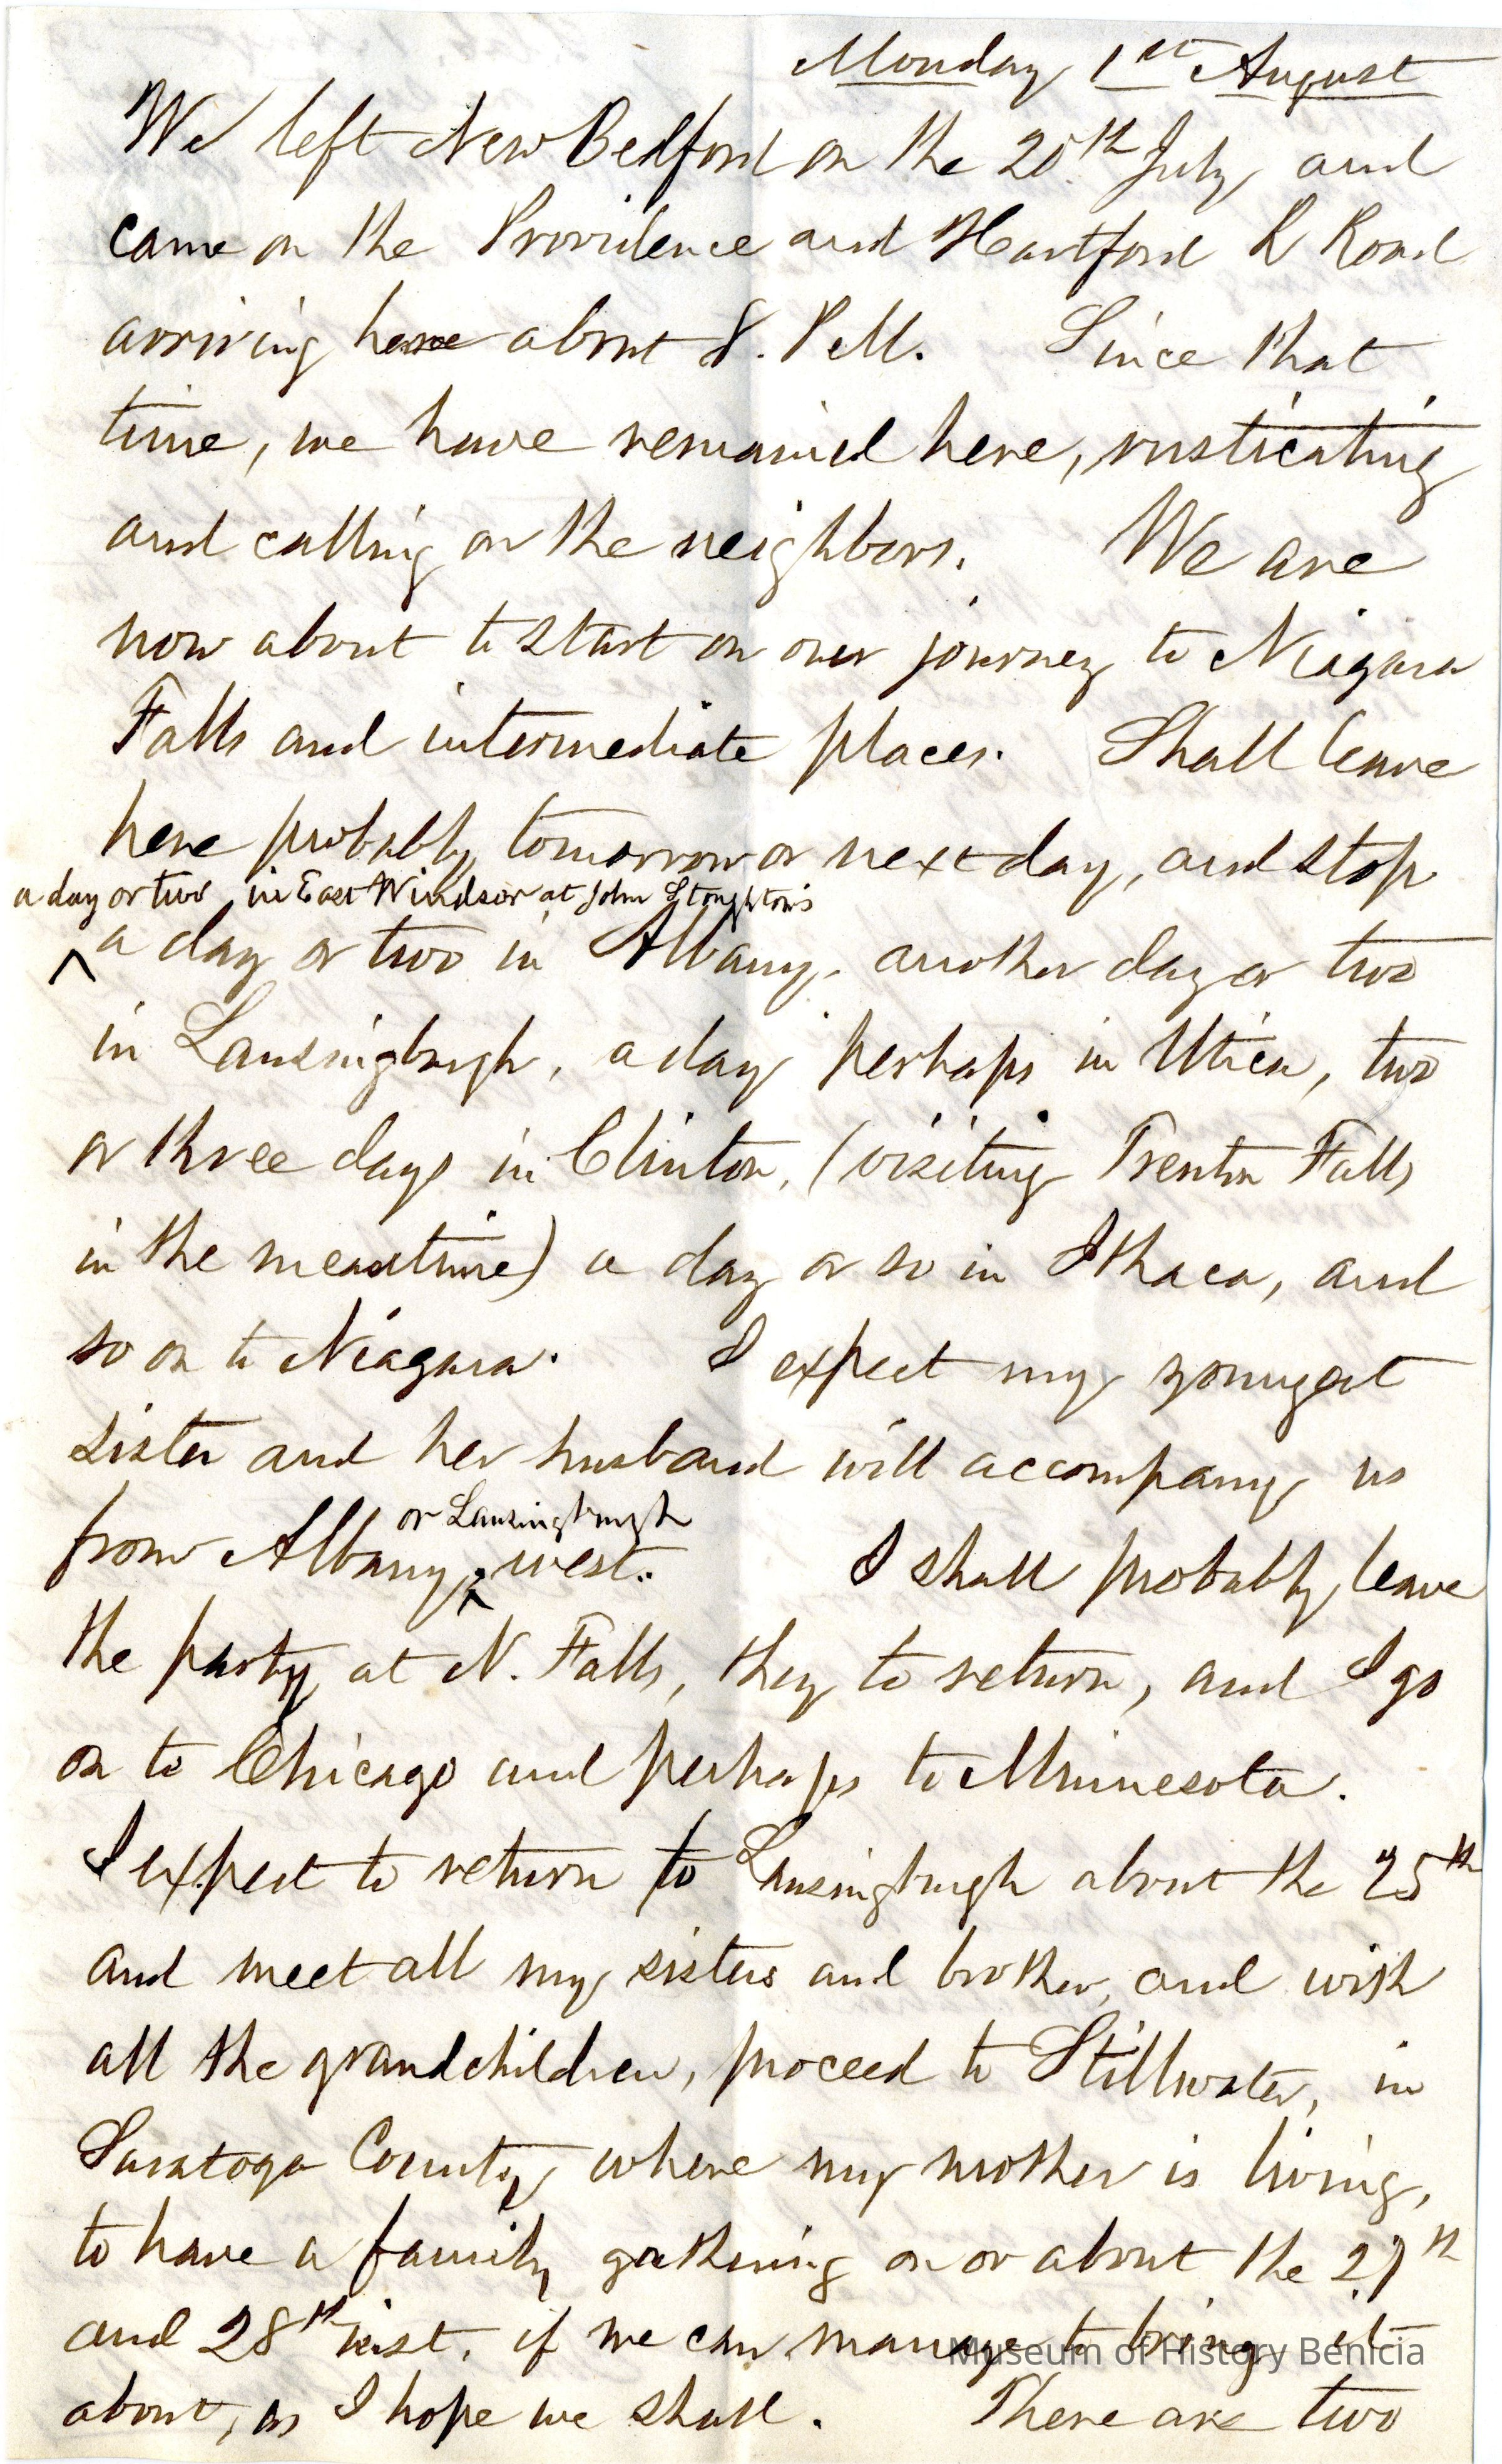 Monday 1st August
We left New Bedford on the 20th July and
came on the Providence and Hartford R Road
arriving here about 8. P M. Since that
time, we have remained here, rusticating
and calling on the neighbors. We are
now about to start on our journey to Niagara
Falls and intermediate places. Shall leave
here probably tomorrow or next day, and stop
a day or two in East Windsor at John Stoughton's
^ a day or two in Albany, another day or two
in Lansingburgh, a day perhaps in Utica, two
or three days in Clinton, (visiting Trenton Falls
in the meantime) a day or so in Ithaca, and
so on to Niagara. I expect my youngest
sister and her husband will accompany us
or Lansingburgh
from Albany ^ west. I shall probably leave
the party at N. Falls, they to return, and I go
on to Chicago and perhaps to Minnesota.
I expect to return to Lansingburgh about the 25th
and meet all my sisters and brother, and with
all the grandchildren, proceed to Stillwater, in
Saratoga County, where my mother is living,
to have a family gathering on or about the 27th
and 28th inst. if we can manage to bring it
about, as I hope we shall. There are two
Museum of History Benicia